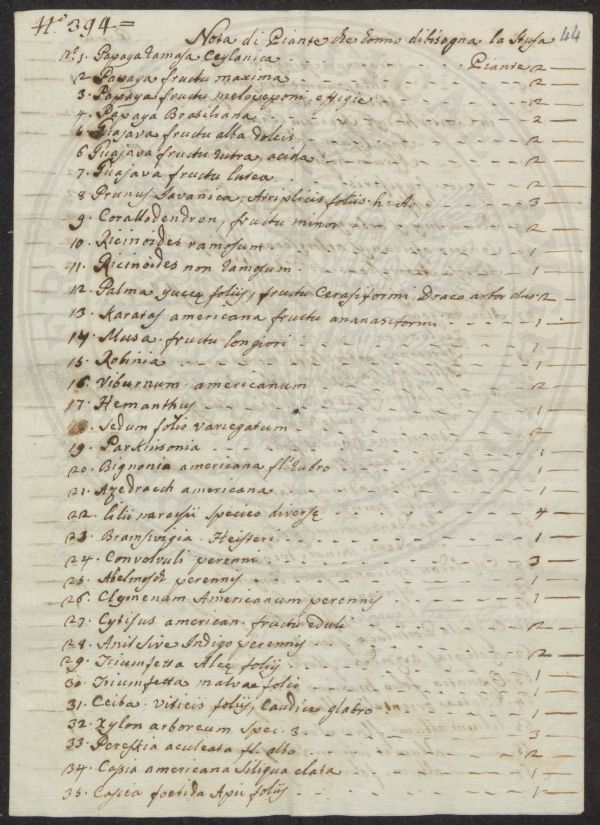 N.o 394=
44
Nota di Piante che donno dibisogna la Stufa
Piante
N.o 1. Papaya ramosa Ceylanica 2
2 Papaya fructu maxima 2
3. Papaya fructu melopeponi effigie 2
4. Papaya Brasiliana 2
5 Guajava fructu alba dolcis
6 Guajava fructu rubra, acida 2
7. Guajava fructu lutea 2
8 Prunus Javanica, Atriplicis foliis. h. A. 3
9. Corallodendron, fructu minor 2
10. Ricinoides ramosum 1
11. Ricinoides non ramosum 1
12. Palma yucce foliis, fructu Cerasiformi Draco arbor 2
13. Karatas americana fructu ananasiformi 1
14. Musa fructu longiori 1
15. Robinia 1
16. Viburnum americanum 2
17. Hemanthus 1
18. Sedum folio variegatum 2
19. Parkinsonia 1
20. Bignonia americana fl. rubro 1
21. Azedrach americana 1
22. Lilii narcissii species diversę 4
23. Bramsvigia Heisteri 1
24. Convolvuli perenni 3
25. Abelmosch perennis 1
26. Clymenum Americanum perennis 1
27. Cytisus american. fructu eduli 2
28. Anil sive Indigo perennis
29. Triumfetta Alcę foliis 2
30. Triumfetta malvae folio 1
31. Ceiba viticis foliis, Caudice glabro 1
32. Xylon arboreum spec. 3. 3
33. Pereskia aculeata fl. albo 2
34. Cassia americana siliqua elata 1
35. Cassia foetida Apii foliis 1